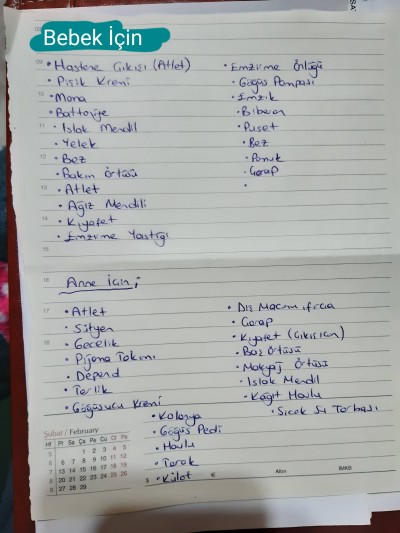 Bebek İçin
• Hastane Çıkışı (Atlet)
• Pişik Kremi
• Mona
• Battaniye
• Islak Mendil
• Yelek
• Bez
• Bakım Örtüsü
• Atlet
• Ağız Mendili
• Kıyafet
• Emzirme Yastığı
• Emzirme Önlüğü
• Göğüs Pompası
• Emzik
• Biberon
• Puset
• Bez
• Pamuk
• Çorap
•
Anne İçin;
• Atlet
• Sütyen
• Gecelik
• Pijama Takımı
• Depend
• Terlik
• Göğüsucu Kremi
• Diş Macunu, fırça
• Çorap
• Kıyafet (Çıkış için)
• Baş Örtüsü
• Makyaj Örtüsü
• Islak Mendil
• Kağıt Havlu
• Sıcak Su Torbası
• Kolonya
• Göğüs Pedi
• Havlu
• Tarak
• Külot
Şubat / February
Hf Pt Sa Ça Pe Cu Ct Pa
5 1 2 3 4 5
6 6 7 8 9 10 11 12
7 13 14 15 16 17 18 19
8 20 21 22 23 24 25 26
9 27 28 29
$ € Altın IMKB